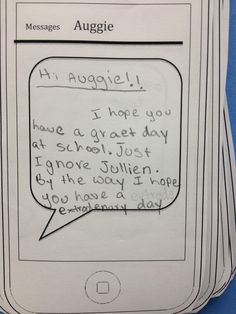 Messages Auggie
Hi Auggie!!
I hope you
have a graet day
at school. Just
Ignore Jullien.
By the way I hope
you have a
extrodenary day